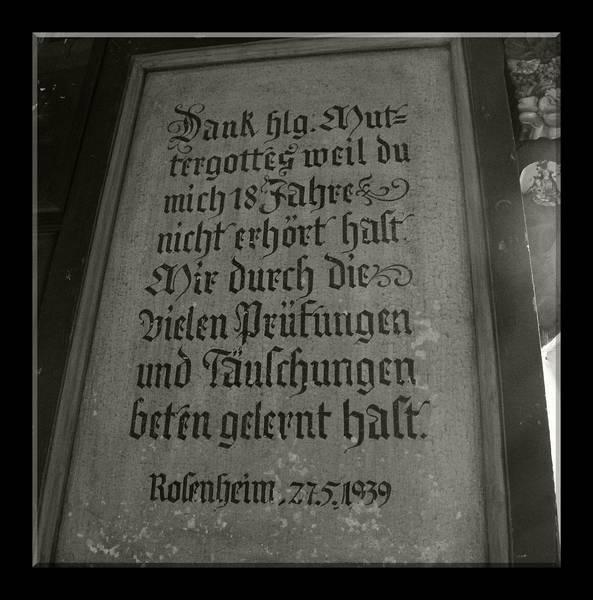 Dank hlg. Mut=
tergottes weil du
mich 18 Jahre
nicht erhört hast.
Mir durch die
vielen Prüfungen
und Täuschungen
beten gelernt hast.
Rosenheim, 27.5.1939